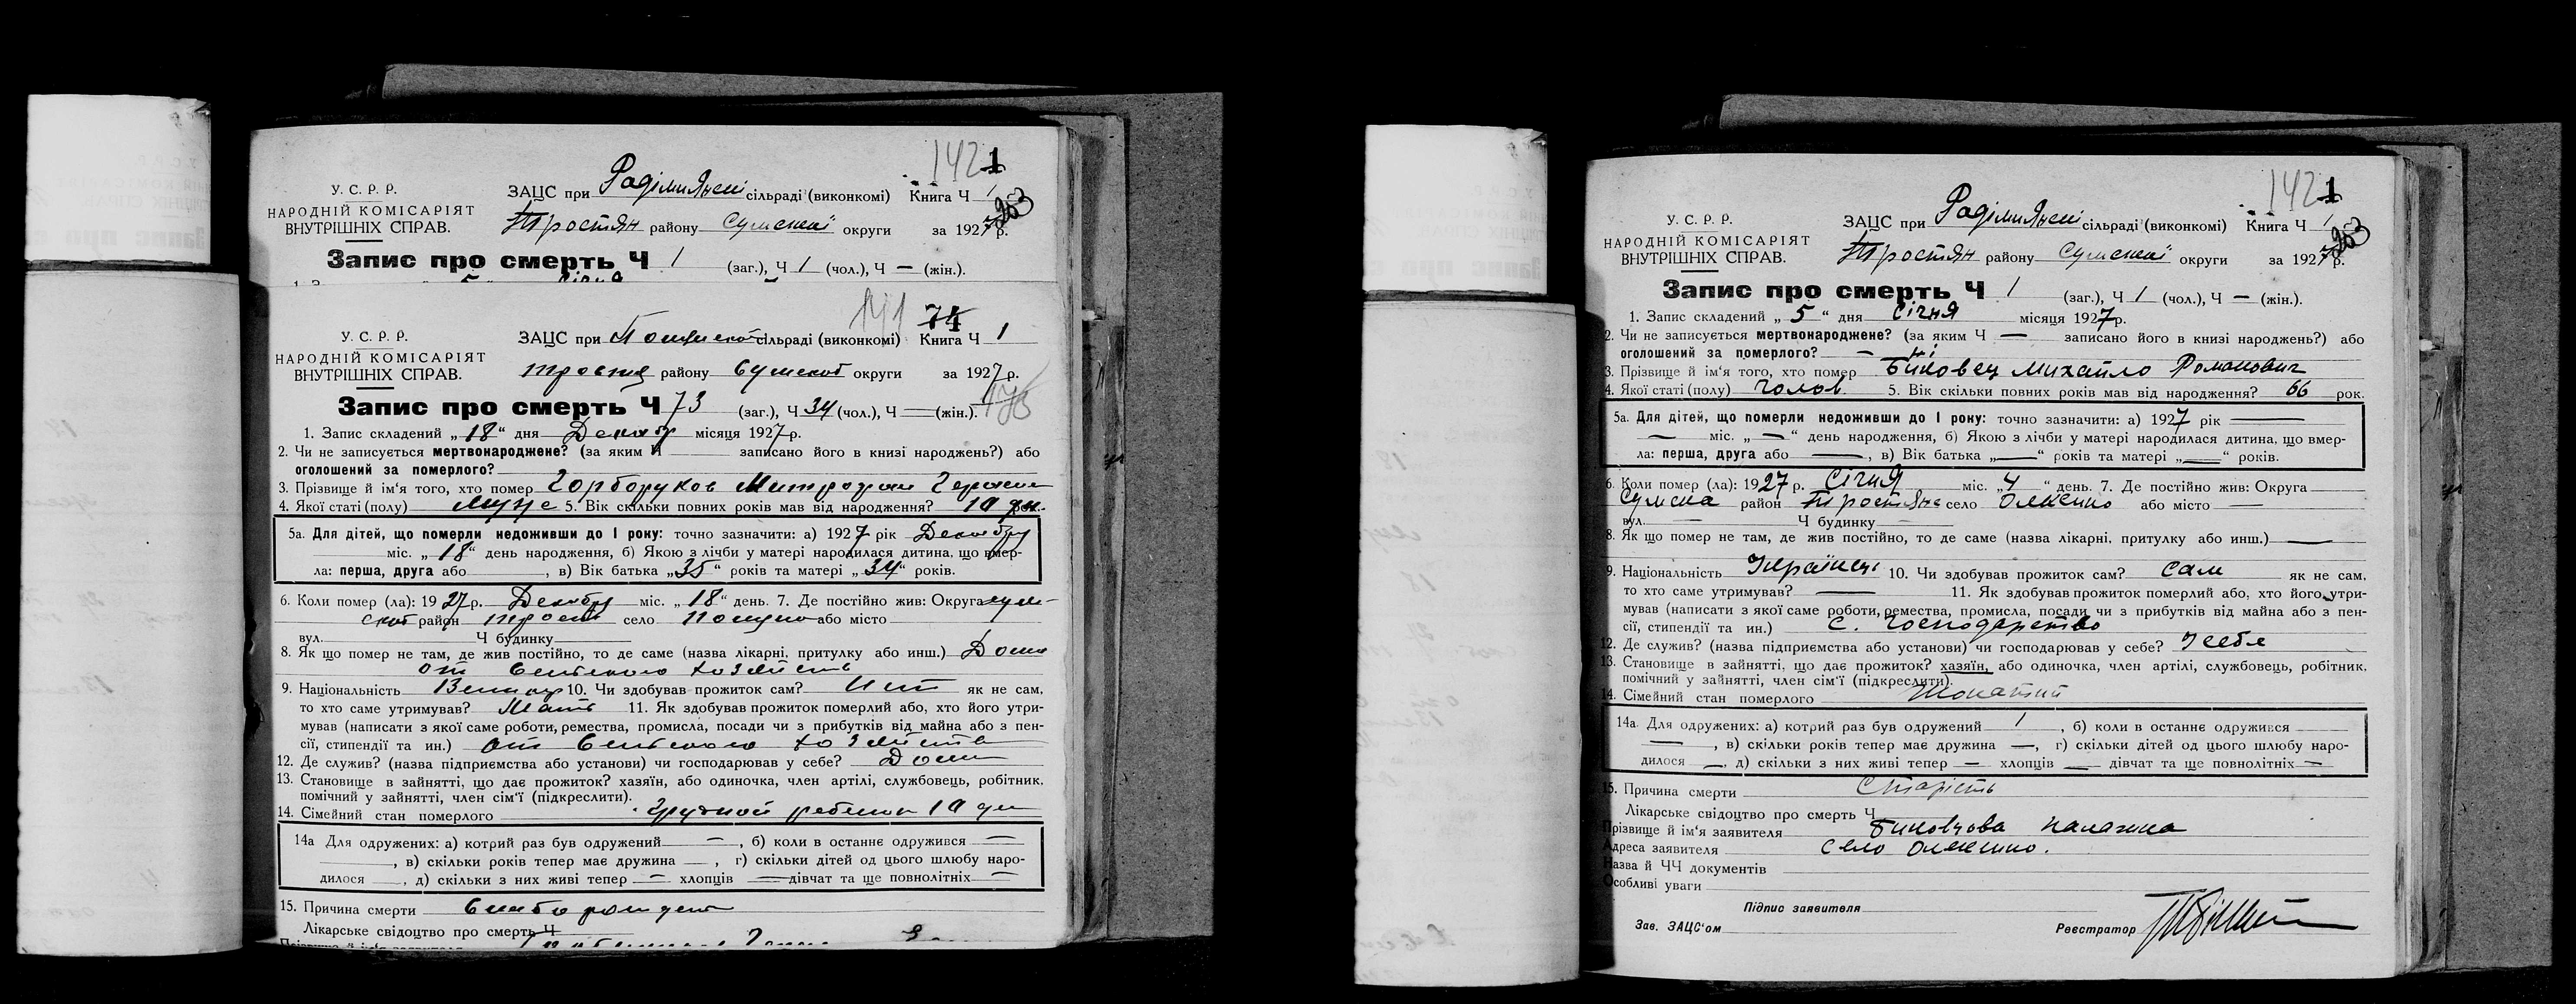 142 1
У. С. Р. Р.
НАРОДНІЙ КОМІСАРІЯТ
ВНУТРІШНІХ СПРАВ.
ЗАЦС при сільраді (виконкомі) Книга Ч 1
203
Тростян району Сумської округи за 1927 р.
Запис про смерть Ч 1 (заг.), Ч 1 (чол.), Ч — (жін.).
141 74
У. С. Р. Р.
НАРОДНІЙ КОМІСАРІЯТ
ВНУТРІШНІХ СПРАВ.
ЗАЦС при сільраді (виконкомі) Книга Ч 1
району Сумской округи за 1927 р.
Запис про смерть Ч 73 (заг.), Ч 34 (чол.), Ч — (жін.).
1. Запис складений „ 18 “ дня Декабр місяця 1927 р.
2. Чи не записується мертвонароджене? (за яким Ч записано його в книзі народжень?) або
оголошений за померлого?
3. Прізвище й ім'я того, хто помер Горборуков Митрофан
4. Якої статі (полу) 5. Вік скільки повних років мав від народження? 10
5а. Для дітей, що померли недоживши до 1 року: точно зазначити: а) 1927 рік Декабру
міс. „ 18 “ день народження, б) Якою з лічби у матері народилася дитина, що вмер-
ла: перша, друга або , в) Вік батька „ 35 “ років та матері „ 34 “ років.
6. Коли помер (ла): 1927 р. Декабру міс. „ 18 “ день. 7. Де постійно жив: Округа сум-
ской район трост село або місто
вул. Ч будинку
8. Як що помер не там, де жив постійно, то де саме (назва лікарні, притулку або инш.) Дома
от хозяйств
9. Національність 10. Чи здобував прожиток сам? Нет як не сам,
то хто саме утримував? Мать 11. Як здобував прожиток померлий або, хто його утри-
мував (написати з якої саме роботи, ремества, промисла, посади чи з прибутків від майна або з пен-
сії, стипендії та ин.) от хозяйства
12. Де служив? (назва підприємства або установи) чи господарював у себе? Дома
13. Становище в зайнятті, що дає прожиток? хазяїн, або одиночка, член артілі, службовець, робітник,
помічний у зайнятті, член сім'ї (підкреслити).
14. Сімейний стан померлого Грудной ребенок 10 дн
14а Для одружених: а) котрий раз був одружений — , б) коли в останнє одружився —
, в) скільки років тепер має дружина — , г) скільки дітей од цього шлюбу наро-
дилося , д) скільки з них живі тепер — хлопців — дівчат та ще повнолітніх —
15. Причина смерти
Лікарське свідоцтво про смерть Ч
142 1
У. С. Р. Р.
НАРОДНІЙ КОМІСАРІЯТ
ВНУТРІШНІХ СПРАВ.
ЗАЦС при сільраді (виконкомі) Книга Ч 1
203
Тростян району Сумської округи за 1927 р.
Запис про смерть Ч 1 (заг.), Ч 1 (чол.), Ч — (жін.).
1. Запис складений „ 5 “ дня Січня місяця 1927 р.
2. Чи не записується мертвонароджене? (за яким Ч — записано його в книзі народжень?) або
оголошений за померлого? —
3. Прізвище й ім'я того, хто помер Биковец Михайло Романович
4. Якої статі (полу) чолов. 5. Вік скільки повних років мав від народження? 66 рок.
5а. Для дітей, що померли недоживши до 1 року: точно зазначити: а) 1927 рік —
— міс. „ — “ день народження, б) Якою з лічби у матері народилася дитина, що вмер-
ла: перша, друга або — , в) Вік батька „ — “ років та матері „ — “ років.
6. Коли помер (ла): 1927 р. Січня міс. „ 4 “ день. 7. Де постійно жив: Округа
Сумська район Тростяне село Олексино або місто —
вул. — Ч будинку —
8. Як що помер не там, де жив постійно, то де саме (назва лікарні, притулку або инш.) —
9. Національність Українець 10. Чи здобував прожиток сам? Сам як не сам,
то хто саме утримував? — 11. Як здобував прожиток померлий або, хто його утри-
мував (написати з якої саме роботи, ремества, промисла, посади чи з прибутків від майна або з пен-
сії, стипендії та ин.) С. Господарство
12. Де служив? (назва підприємства або установи) чи господарював у себе? У себе
13. Становище в зайнятті, що дає прожиток? хазяїн, або одиночка, член артілі, службовець, робітник,
помічний у зайнятті, член сім'ї (підкреслити).
14. Сімейний стан померлого Жонатий
14а. Для одружених: а) котрий раз був одружений 1 , б) коли в останнє одружився
— , в) скільки років тепер має дружина — , г) скільки дітей од цього шлюбу наро-
дилося — , д) скільки з них живі тепер — хлопців — дівчат та ще повнолітніх —
15. Причина смерти Старість
Лікарське свідоцтво про смерть Ч
Прізвище й ім'я заявителя Биковцова Палажка
Адреса заявителя село Олексино.
Назва й ЧЧ документів
Особливі уваги
Підпис заявителя
Зав. ЗАЦС'ом Реєстратор